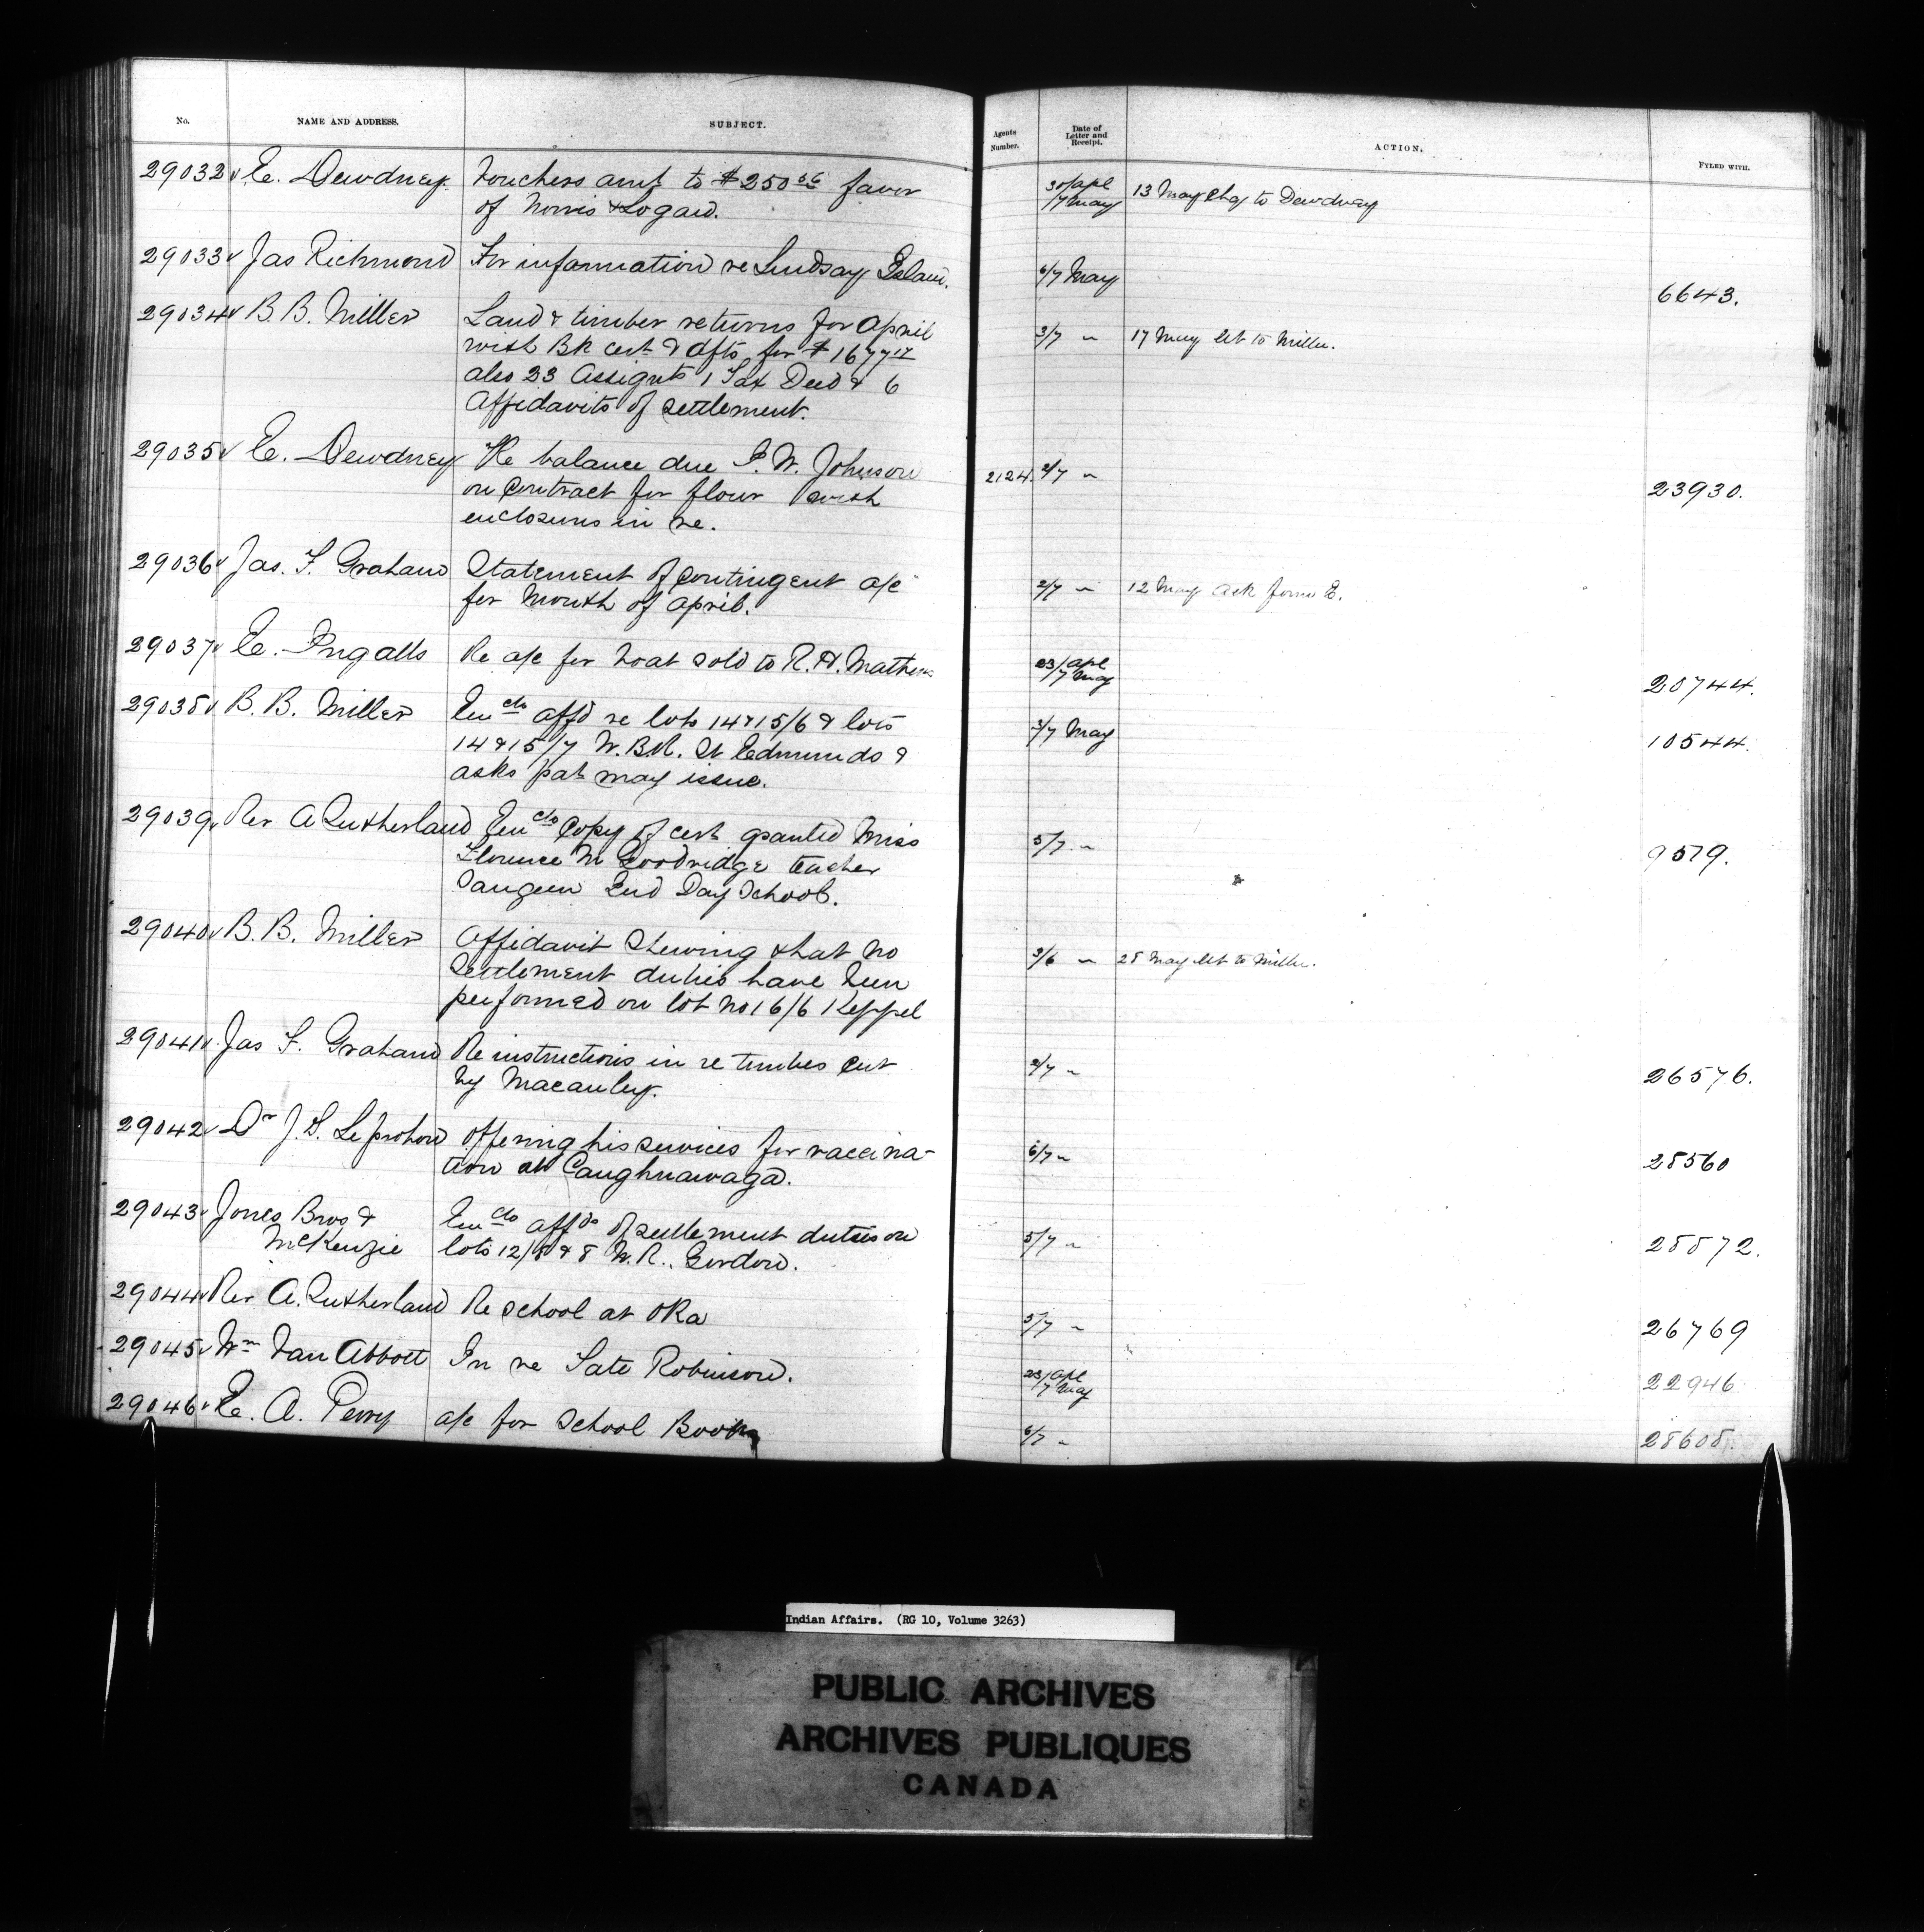 No. NAME AND ADDRESS. SUBJECT. Agents Number. Date of Letter and Receipt. ACTION. FYLED WITH.
29032 E. Dewdney. Vouchers amt to $250 favor 30/apl 13 May Chq to Dewdney
of Norris & Logan. /7 May
29033 Jas Richmond For information re Lindsay Island. 6/7 May 6643.
29034 B. B. Miller Land & timber returns for April 3/7 " 17 May let to Miller.
with Bk cert & dfts for $1677 17
also 23 Assignts 1 Tax Deed & 6
Affidavits of settlement.
29035 E. Dewdney Re balance due I. W. Johnson 2124. 2/7 " 23930.
on contract for flour with
enclosures in re.
29036 Jas. F. Graham Statement of Contingent a/c 2/7 " 12 May ask form E.
for Month of April.
29037 E. Ingalls Re a/c for boat sold to R. H. Mathews 23/apl /7 May 20744.
29038 B. B. Miller Encls affd re lots 14&15/6 & lots 3/7 May 10544.
14&15/7 W.B.R. St Edmunds &
asks pat may issue.
29039 Rev A Sutherland Encls Copy of cert granted Miss 5/7 " 9579.
Florence M Goodridge teacher
Saugeen Ind Day School.
29040 B. B. Miller Affidavit Shewing that no 3/6 " 28 May let to Miller.
Settlement duties have been
performed on lot no 16/6 Keppel
29041 Jas F. Graham Re instructions in re timber cut 2/7 " 26576.
by Macauley.
29042 Dr J. L. Leprohon Offering his services for vaccina- 6/7 " 28560
tion at Caughnawaga.
29043 Jones Bros & Encls affds of settlement duties on 5/7 " 28872.
McKenzie lots 12/8 & 8 W.R. Gordon.
29044 Rev A. Sutherland Re School at Oka 5/7 " 26769
29045 Wm Van Abbott In re Tate Robinson. 23/apl /7 May 22946
29046 E. A. Perry a/c for School Books 6/7 " 28608.
Indian Affairs. (RG 10, Volume 3263)
PUBLIC ARCHIVES
ARCHIVES PUBLIQUES
CANADA